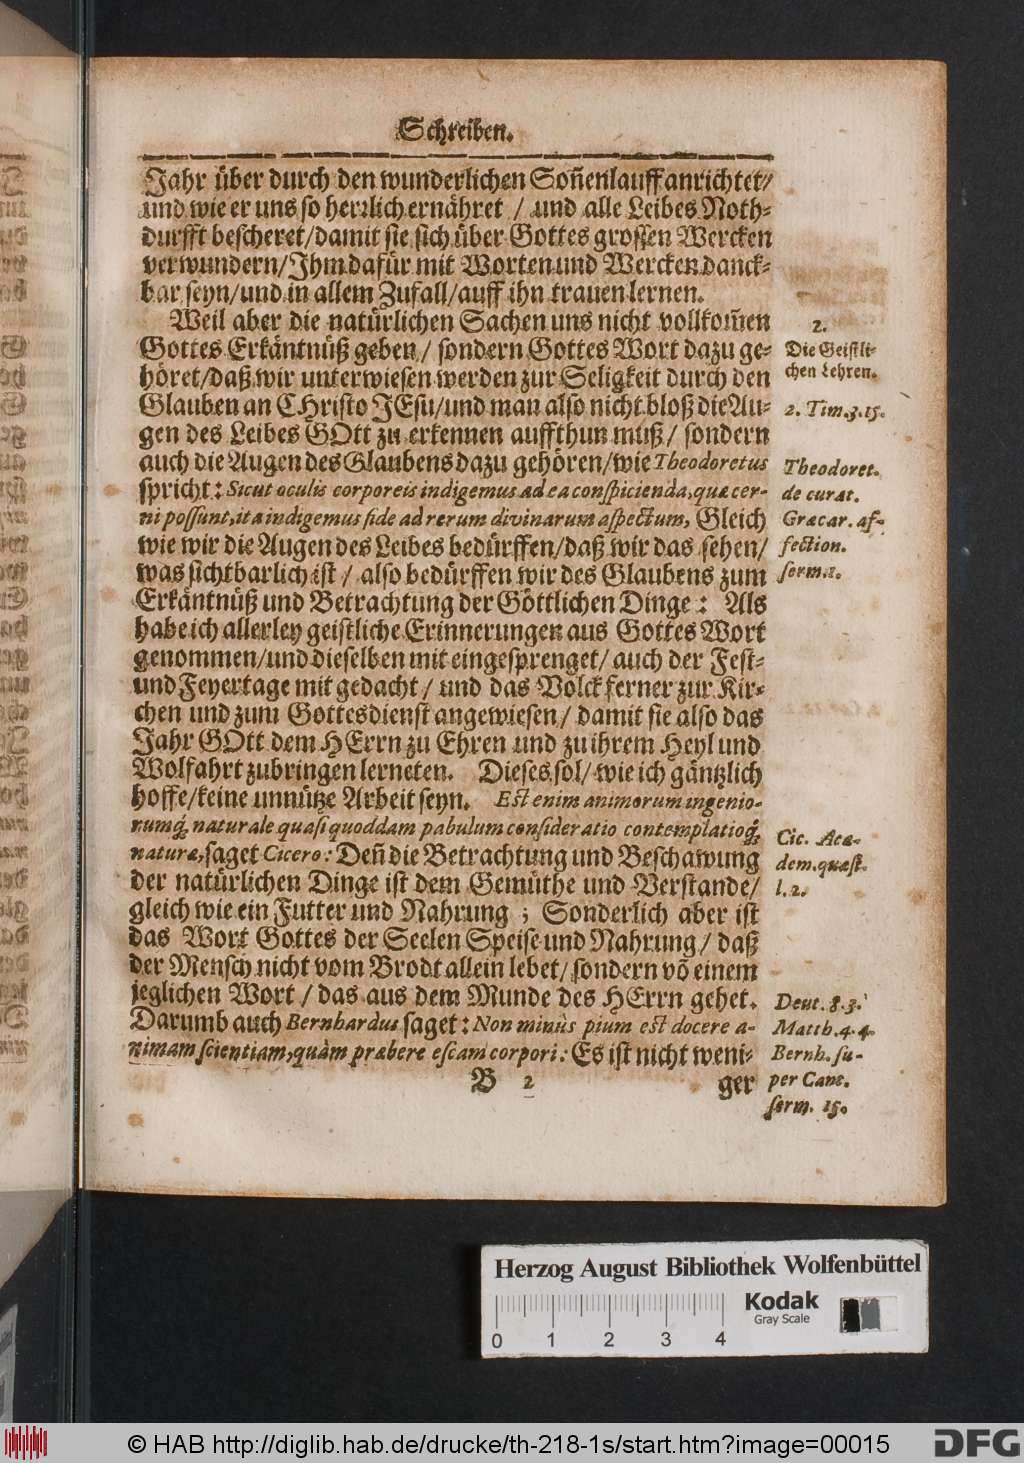 Schreiben.
Jahr über durch den wunderlichen Soñenlauff anrichtet/
und wie er uns so herꝛlich ernähret / und alle Leibes Noth-
durfft bescheret/damit sie sich über Gottes grossen Wercken
verwundern/Ihm dafür mit Worten und Wercken danck-
bar seyn/und in allem Zufall/auff ihn trauen lernen.
Weil aber die natürlichen Sachen uns nicht vollkom̃en
Gottes Erkäntnüß geben / sondern Gottes Wort dazu ge-
höret/daß wir unterwiesen werden zur Seligkeit durch den
Glauben an CHristo JEsu/und man also nicht bloß die Au-
gen des Leibes GOtt zu erkennen auffthun muß / sondern
auch die Augen des Glaubens dazu gehören/wie Theodoretus
spricht: Sicut oculis corporeis indigemus ad ea conspicienda, quæ cer-
ni possunt, ita indigemus fide ad rerum divinarum aspectum, Gleich
wie wir die Augen des Leibes bedürffen/daß wir das sehen/
was sichtbarlich ist / also bedürffen wir des Glaubens zum
Erkäntnüß und Betrachtung der Göttlichen Dinge: Als
habe ich allerley geistliche Erinnerungen aus Gottes Wort
genommen/und dieselben mit eingesprenget/ auch der Fest-
und Feyertage mit gedacht / und das Volck ferner zur Kir-
chen und zum Gottesdienst angewiesen / damit sie also das
Jahr GOtt dem HErrn zu Ehren und zu ihrem Heyl und
Wolfahrt zubringen lerneten. Dieses sol/ wie ich gäntzlich
hoffe/keine unnütze Arbeit seyn. Est enim animorum ingenio-
rumq́; naturale quasi quoddam pabulum consideratio contemplatioq́;
naturæ, saget Cicero: Deñ die Betrachtung und Beschawung
der natürlichen Dinge ist dem Gemüthe und Verstande/
gleich wie ein Futter und Nahrung ; Sonderlich aber ist
das Wort Gottes der Seelen Speise und Nahrung / daß
der Mensch nicht vom Brodt allein lebet/ sondern võ einem
jeglichen Wort / das aus dem Munde des HErrn gehet.
Darumb auch Bernhardus saget: Non minùs pium est docere a-
nimam scientiam, quàm præbere escam corpori: Es ist nicht weni-
B 2 ger
2.
Die Geistli-
chen Lehren.
2. Tim. 3. 15.
Theodoret.
de curat.
Græcar. af-
fection.
serm. 1.
Cic. Aca-
dem. quæst.
l. 2.
Deut. 8. 3.
Matth. 4. 4.
Bernh. su-
per Cant.
serm. 15.
Herzog August Bibliothek Wolfenbüttel
Kodak
Gray Scale
0 1 2 3 4
© HAB http://diglib.hab.de/drucke/th-218-1s/start.htm?image=00015
DFG